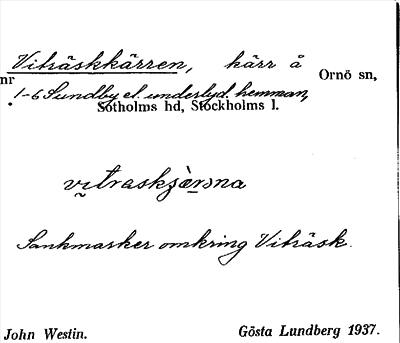 Viträskkärren, kärr å Ornö sn,
nr 1-6 Sundby el. underlyd. hemman,
Sotholms hd, Stockholms l.
vi̬traskʂæ̀rəna
Sankmarker omkring Viträsk.
John Westin. Gösta Lundberg 1937.